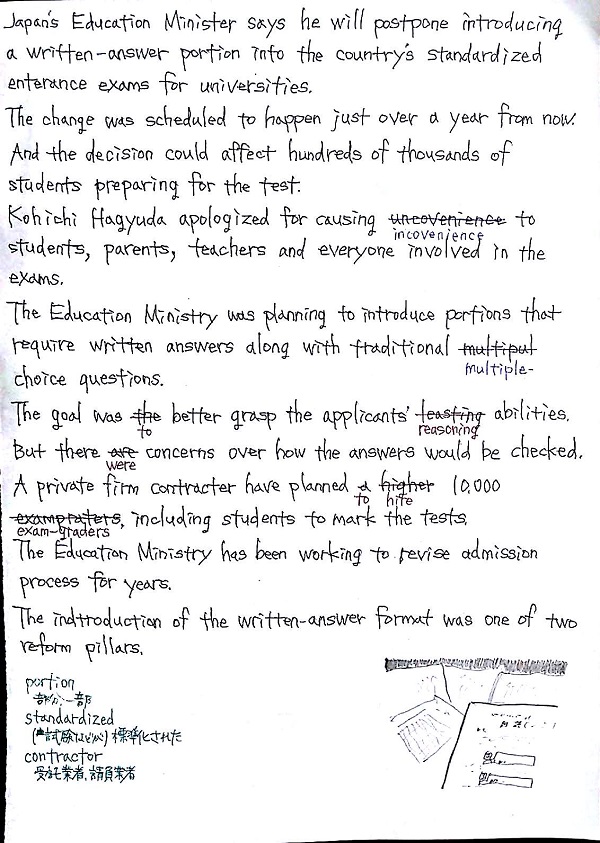 Japan's Education Minister says he will postpone introducing
a written-answer portion into the country's standardized
enterance exams for universities.
The change was scheduled to happen just over a year from now.
And the decision could affect hundreds of thousands of
students preparing for the test.
Kohichi Hagyuda apologized for causing uncovenience to
incovenience
students, parents, teachers and everyone involved in the
exams.
The Education Ministry was planning to introduce portions that
require written answers along with traditional multiput
multiple-
choice questions.
The goal was the better grasp the applicants' teasting abilities.
to reasoning
But there are concerns over how the answers would be checked.
were
A private firm contracter have planned a higher 10.000
to hire
examplaters, including students to mark the tests.
exam-graders
The Education Ministry has been working to revise admission
process for years.
The indtroduction of the written-answer format was one of two
reform pillars.
portion
部分、一部
standardized
(試験などが) 標準化された
contractor
受託業者、請負業者